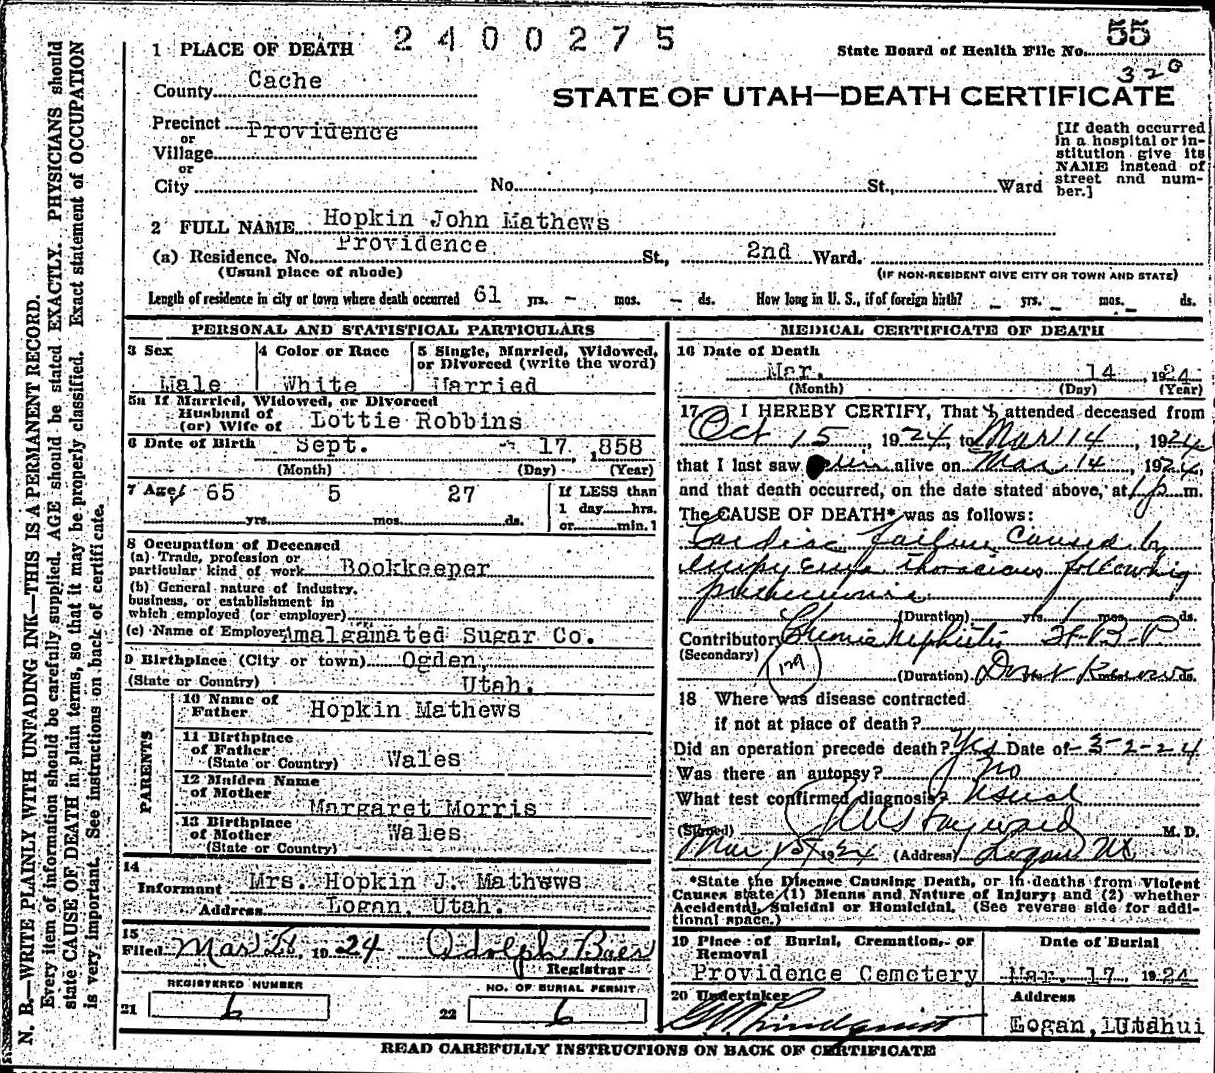 2400275
1 PLACE OF DEATH
State Board of Health File No. 55
320
County Cache
STATE OF UTAH—DEATH CERTIFICATE
Precinct Providence
or
Village
or
City No. , St., Ward
[If death occurred in a hospital or institution give its NAME instead of street and number.]
2 FULL NAME Hopkin John Mathews
(a) Residence. No. Providence St., 2nd Ward.
(Usual place of abode) (IF NON-RESIDENT GIVE CITY OR TOWN AND STATE)
Length of residence in city or town where death occurred 61 yrs. – mos. – ds. How long in U. S., if of foreign birth? – yrs. – mos. ds.
PERSONAL AND STATISTICAL PARTICULARS
3 Sex Male
4 Color or Race White
5 Single, Married, Widowed, or Divorced (write the word) Married
5a If Married, Widowed, or Divorced
Husband of
(or) Wife of Lottie Robbins
6 Date of Birth Sept. 17, 858
(Month) (Day) (Year)
7 Age 65 5 27
yrs. mos. ds.
If LESS than
1 day hrs.
or min.
8 Occupation of Deceased
(a) Trade, profession or
particular kind of work Bookkeeper
(b) General nature of industry,
business, or establishment in
which employed (or employer)
(c) Name of Employer Amalgamated Sugar Co.
9 Birthplace (City or town) Ogden,
(State or Country) Utah.
PARENTS
10 Name of
Father Hopkin Mathews
11 Birthplace
of Father
(State or Country) Wales
12 Maiden Name
of Mother
Margaret Morris
13 Birthplace
of Mother Wales
(State or Country)
14
Informant Mrs. Hopkin J. Mathews
Address Logan, Utah.
15
Filed 1924 Adolph Baer
Registrar
REGISTERED NUMBER
21 6
NO. OF BURIAL PERMIT
22 6
MEDICAL CERTIFICATE OF DEATH
16 Date of Death
Mar. 14, 1924
(Month) (Day) (Year)
17 I HEREBY CERTIFY, That I attended deceased from
Oct 15, 1924, to Mar 14, 1924
that I last saw him alive on Mar 14, 1924,
and that death occurred, on the date stated above, at 1 p m.
The CAUSE OF DEATH* was as follows:
Cardiac failure caused by
empyema thoracious following
pneumonia
(Duration) yrs. 1 mos. ds.
Contributory Chronic Nephritis H-B-P
(Secondary)
129
(Duration) Dont Know ds.
18 Where was disease contracted
if not at place of death?
Did an operation precede death? Yes Date of 3-2-24
Was there an autopsy? No
What test confirmed diagnosis? Usual
(Signed) Hayward M. D.
Mar 1924 (Address) Logan Ut
*State the Disease Causing Death, or in deaths from Violent
Causes state (1) Means and Nature of Injury; and (2) whether
Accidental, Suicidal or Homicidal. (See reverse side for additional space.)
19 Place of Burial, Cremation, or
Removal
Providence Cemetery
Date of Burial
Mar. 17, 1924
20 Undertaker
Lindquist
Address
Logan, Utah
READ CAREFULLY INSTRUCTIONS ON BACK OF CERTIFICATE
N. B.—WRITE PLAINLY WITH UNFADING INK—THIS IS A PERMANENT RECORD.
Every item of information should be carefully supplied. AGE should be stated EXACTLY. PHYSICIANS should
state CAUSE OF DEATH in plain terms, so that it may be properly classified. Exact statement of OCCUPATION
is very important. See instructions on back of certificate.